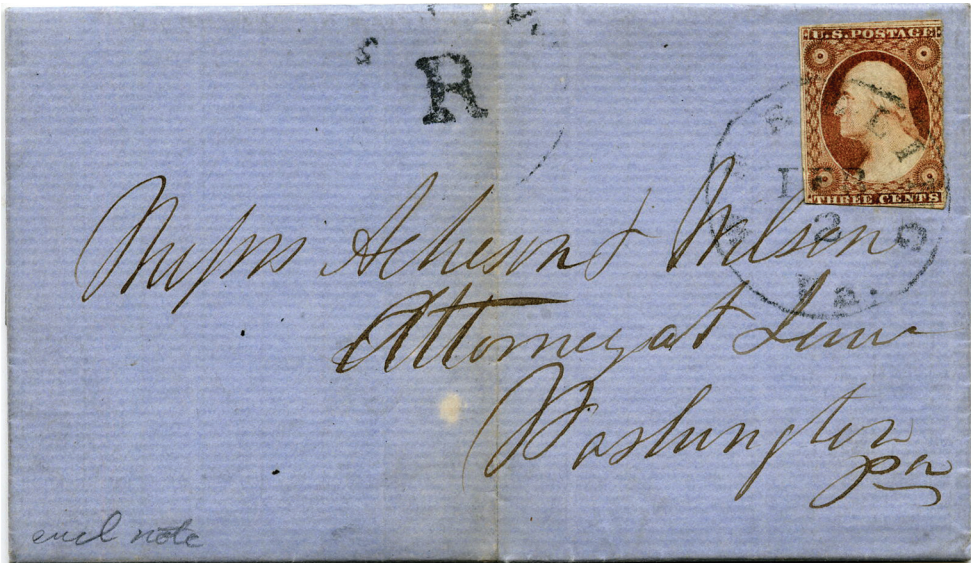 R
U.S. POSTAGE
THREE CENTS
2
Pa.
Messrs Acheson & Wilson
Attorney at Law
Washington
Pa
encl note